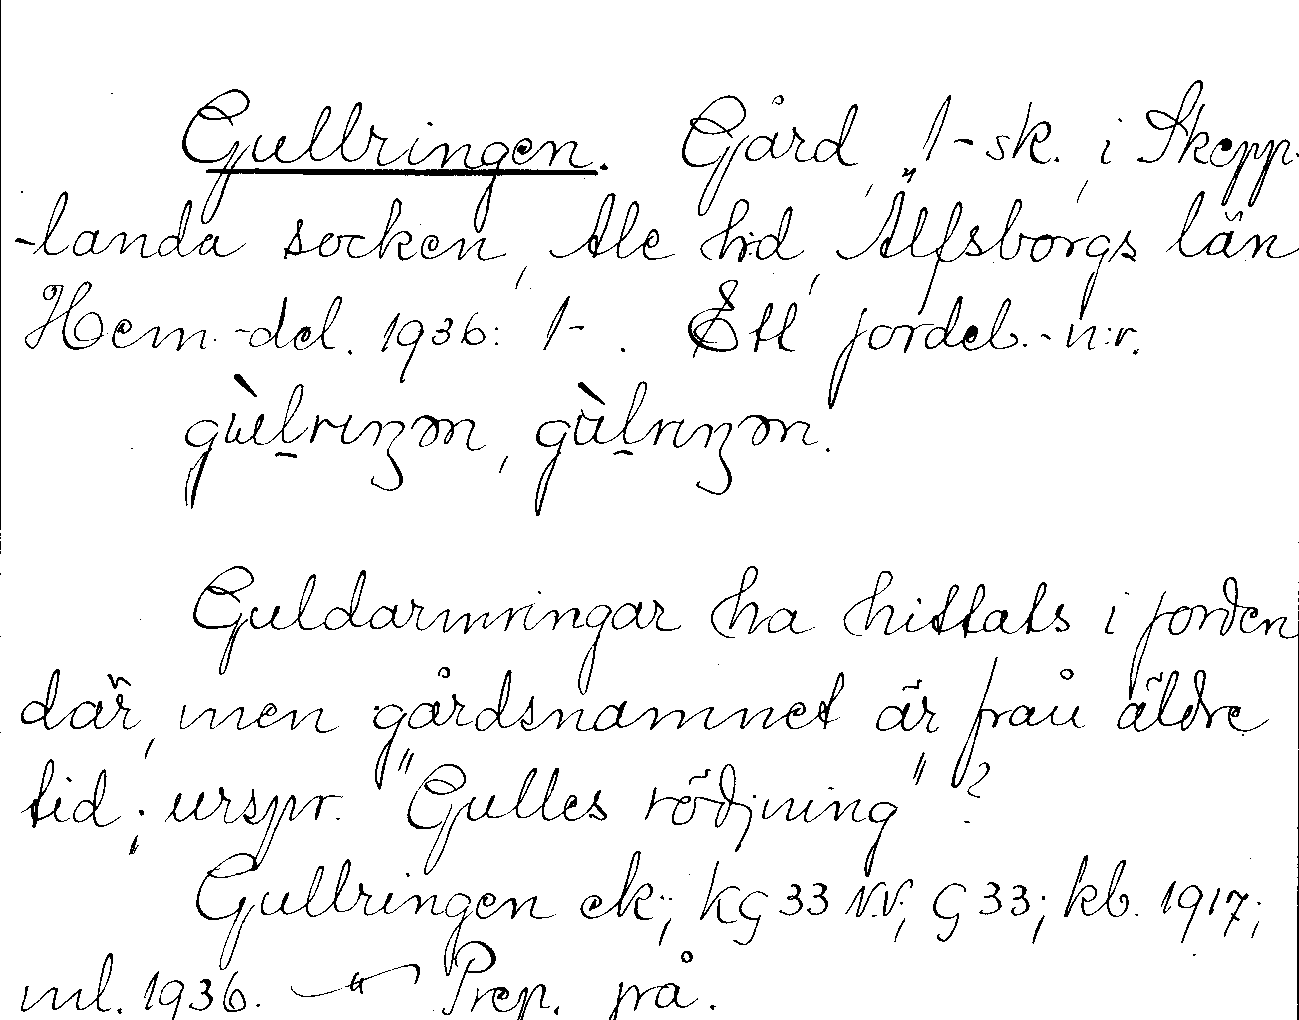 Gullringen. Gård, 1-sk., i Skepp-
-landa socken, Ale hd, Älfsborgs län
Hem.-del. 1936: 1- . Ett jordeb.-n:r.
gùl̠rıŋən, gùl̠rıŋən.
Guldarmringar ha hittats i jorden
där, men gårdsnamnet är från äldre
tid; urspr. "Gulles rödjning"?
Gullringen ek; KG 33 N.V; G 33; kb. 1917;
ml. 1936. — " — Prep. på.